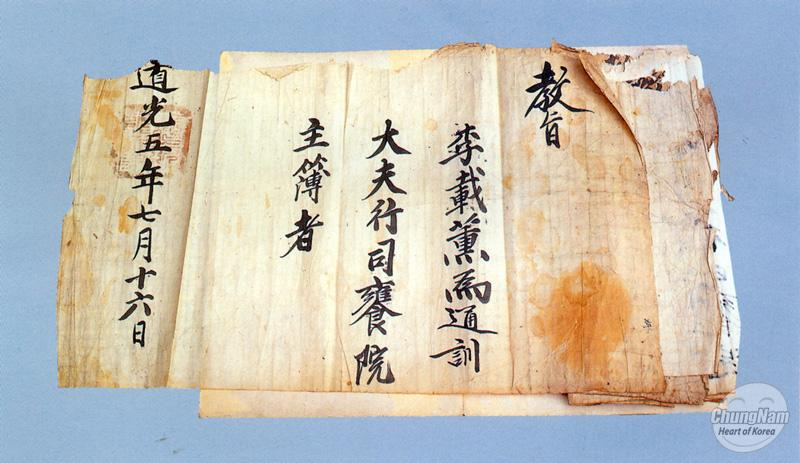 教旨
李載薰爲通訓
大夫行司饔院
主簿者
道光五年七月十六日
ChungNam
Heart of Korea